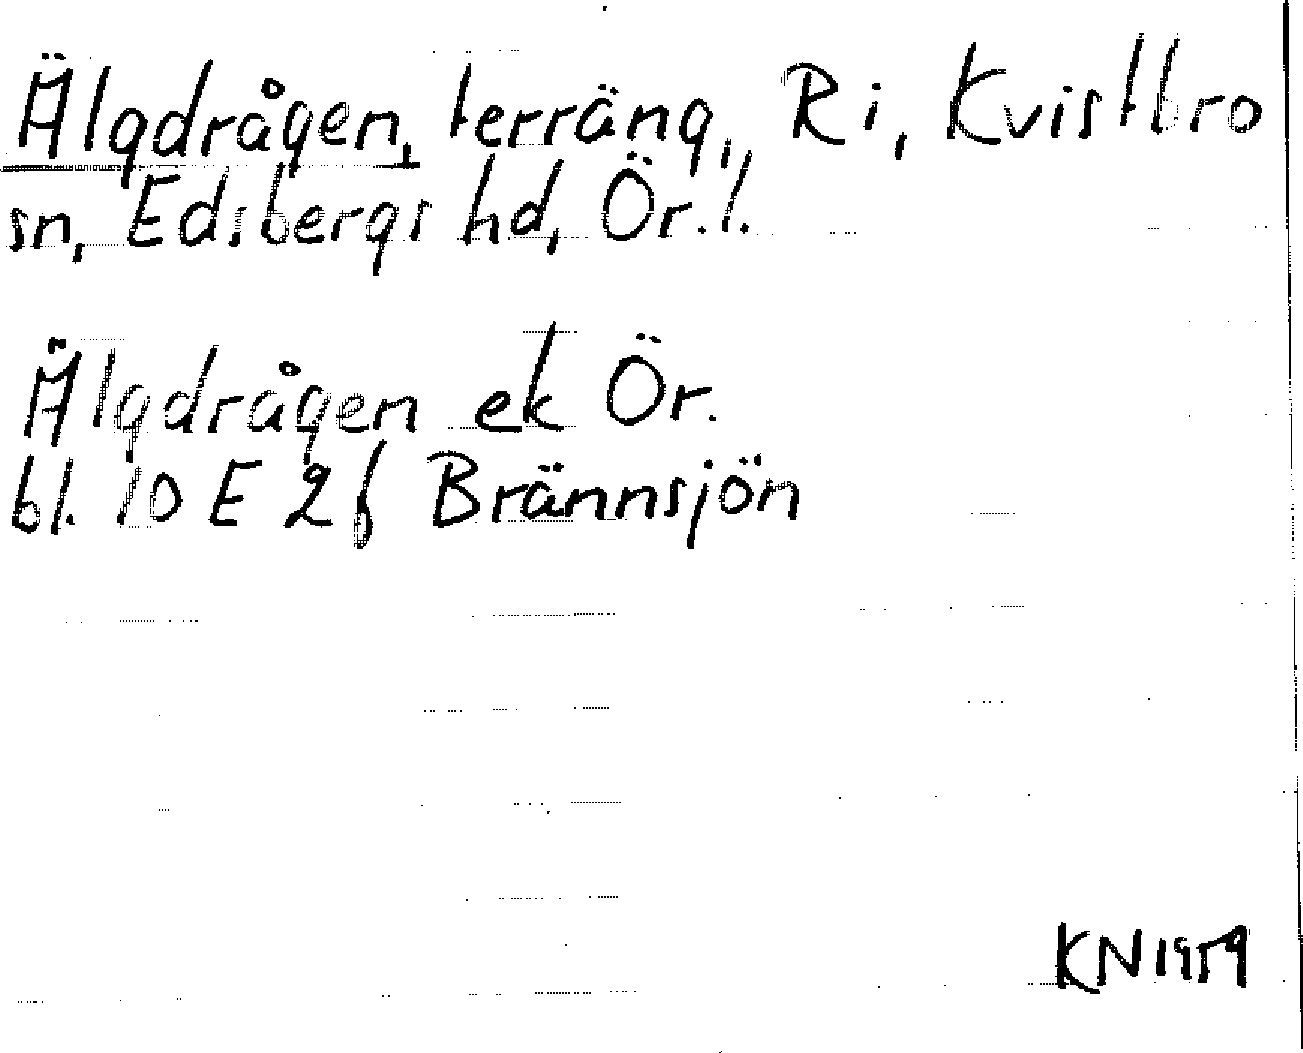 Älgdrågen, terräng, Ri, Kvistbro
sn, Edsbergs hd, Ör. l.
Älgdrågen ek Ör.
bl. 10 E 2 f Brännsjön
KN 1959